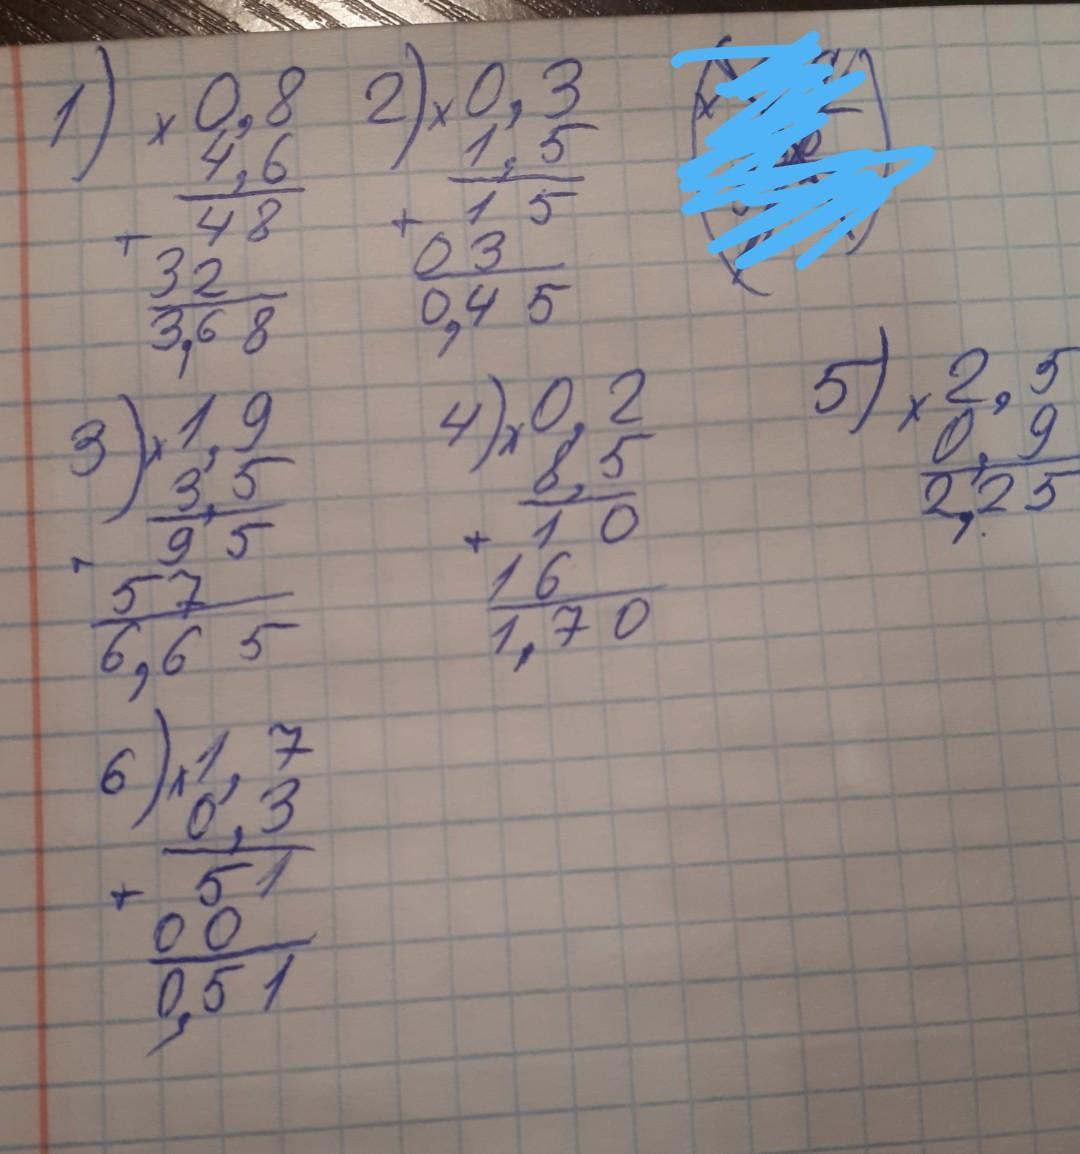 1) × 0,8
4,6
+ 48
32
3,68
2) × 0,3
1,5
+ 15
03
0,45
3) × 1,9
3,5
+ 95
57
6,65
4) × 0,2
8,5
+ 10
16
1,70
5) × 2,5
0,9
2,25
6) × 1,7
0,3
+ 51
00
0,51